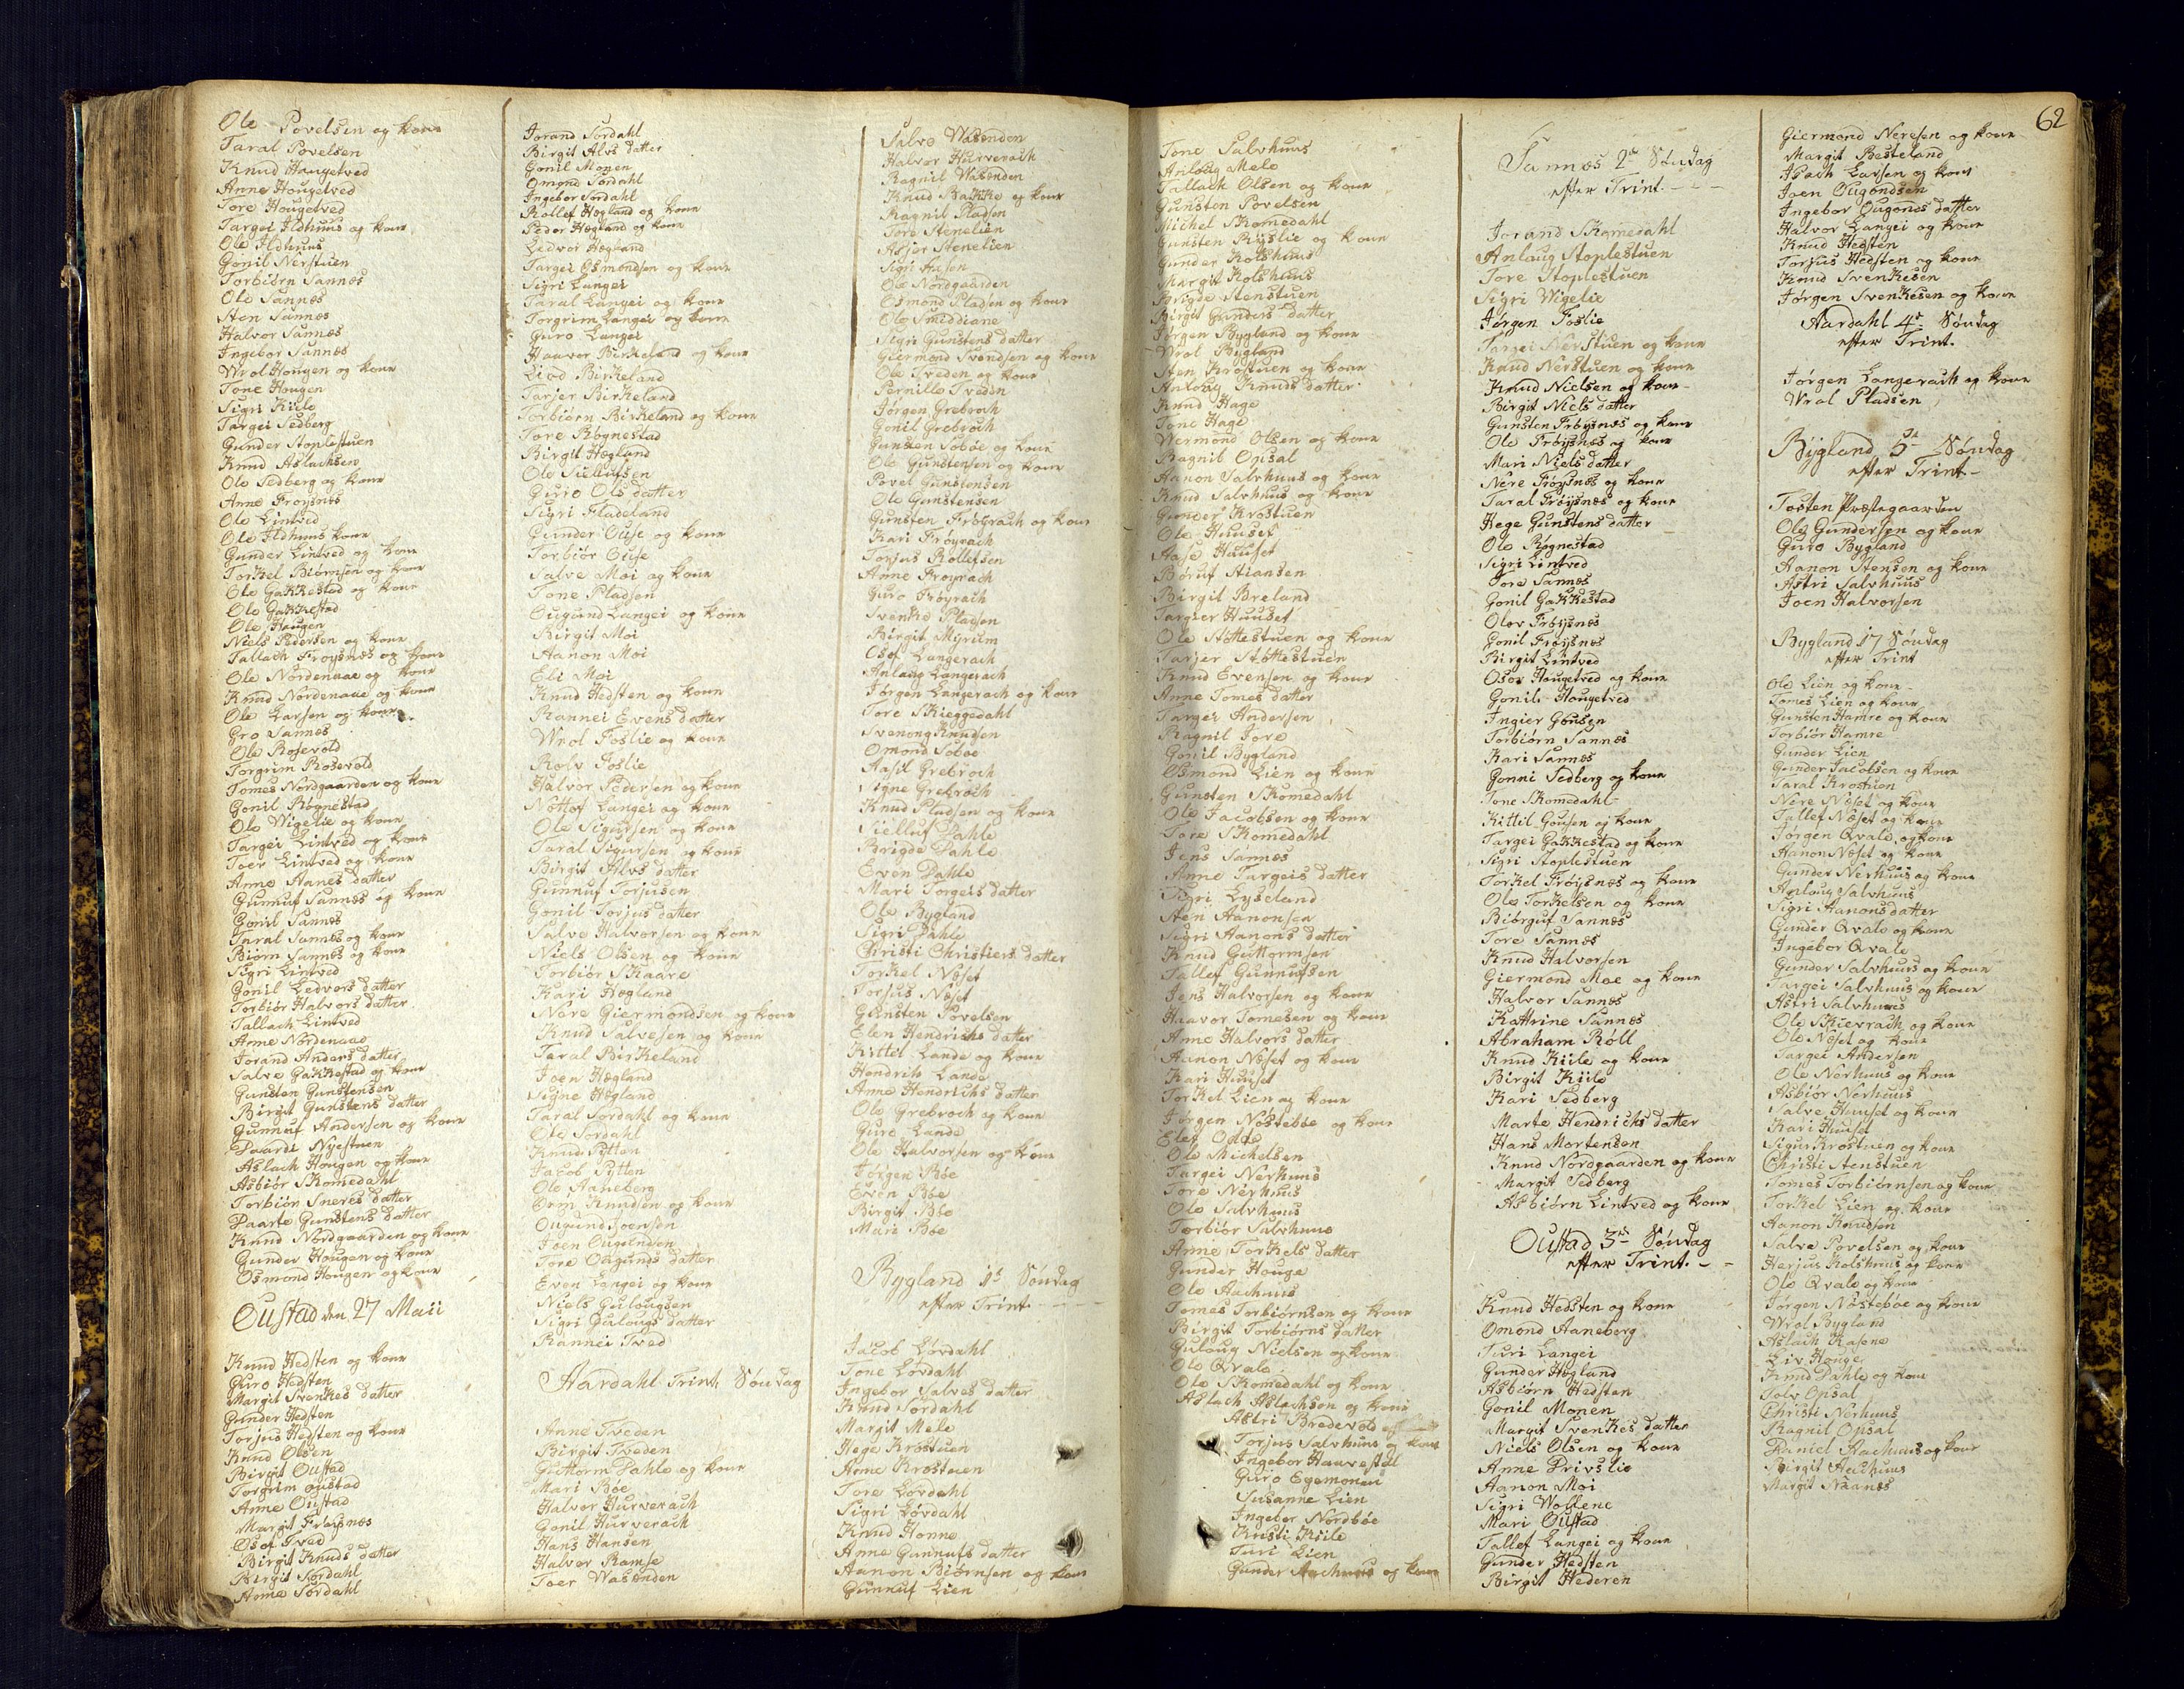 Ole Povelsen og kone
Taral Povelsen
Knud Haugetved
Anne Hougetved
Tore Hougetved
Targei Ildhuus og kone
Ole Ildhuus
Gonil Nerstuen
Torbiörn Sannes
Ole Sannes
Sten Sannes
Halvor Sannes
Ingebor Sannes
Wrol Hougen og kone
Tone Hougen
Sigri Kiile
Targei Sedberg
Gunder Stoplestuen
Knud Aslachsen
Ole Sedberg og kone
Anne Froysnes
Ole Lintved
Ole Ildhuus kone
Gunder Lintved og kone
Torkel Biörnsen og kone
Ole Gakkestad og kone
Ole Gakkestad
Ole Haugen
Niels Pedersen og kone
Tallach Froysnes og kone
Ole Nordenaae og kone
Knud Nordenaae og kone
Ole Larsen og kone
Gro Sannes
Ole Rosevold
Torgrim Rosevold
Tomes Nordgaarden og kone
Gonil Rögnestad
Ole Wigelie og kone
Targei Lintved og kone
Toer Lintved og kone
Anne Aanes datter
Gunnuf Sannes og kone
Gonil Sannes
Taral Sannes og kone
Biörn Sannes og kone
Sigri Lintved
Gonil Ledvors datter
Torbiör Halvors datter
Tallach Lintved
Anne Nordenaae
Jorand Anders datter
Salve Gakkestad og kone
Gunsten Gunstensen
Birgit Gunstens datter
Gunnuf Andersen og kone
Paarde Nyestuen
Aslach Hougen og kone
Asbiör Skomedahl
Torbiör Sneres datter
Paarte Gunstens datter
Knud Nordgaarden og kone
Gunder Hougen og kone
Osmond Hougen og kone
Oustad den 27 Maii
Knud Hedsten og kone
Guro Hedsten
Margit Svenkes datter
Gunder Hedsten
Torjus Hedsten og kone
Knud Olsen
Birgit Oustad
Torgrim Oustad
Anne Oustad
Margit Fröysnes
Osof Tved
Birgit Knuds datter
Birgit Sordahl
Anne Sordahl
Jorand Sordahl
Birgit Alvs datter
Gonil Monen
Omond Sordahl
Ingebor Sordahl
Rollef Hægland og kone
Peder Hægland og kone
Ledvor Hægland
Targei Osmondsen og kone
Sigri Langei
Taral Langei og kone
Torgrim Langei og kone
Guro Langei
Haavor Birkeland og kone
Lied Birkeland
Tarjer Birkeland
Torbiörn Birkeland og kone
Tore Rögnestad
Birgit Hægland
Ole Siellufsen
Guro Ols datter
Sigri Fladeland
Gunder Ouse og kone
Torbiör Ouse
Salve Moi og kone
Tone Pladsen
Ougund Langei og kone
Birgit Moi
Aanon Moi
Eli Moi
Knud Hedsten og kone
Rannei Evens datter
Wrol Foslie og kone
Rolv Foslie
Halvor Pedersen og kone
Nottof Langei og kone
Ole Sigursen og kone
Taral Sigursen og kone
Birgit Alvs datter
Gunnuf Torjusen
Gonil Torjus datter
Salve Halvorsen og kone
Niels Olsen og kone
Torbiör Skaare
Kari Hægland
Nere Giermondsen og kone
Knud Salvesen og kone
Taral Birkeland
Joen Hægland
Signe Hægland
Taral Sordahl og kone
Ole Sordahl
Knud Pytten
Jacob Pytten
Ole Aaneberg
Orm Knudsen og kone
Ougund Joensen
Joen Ougunden
Tore Ougunds datter
Even Langei og kone
Niels Gulougsen
Sigri Gulougs datter
Rannei Tved
Aardahl Trint. Söndag
Anne Tveden
Birgit Tveden
Guttorm Dahle og kone
Mari Böe
Halvor Hurverach
Gonil Hurverach
Hans Hansen
Halvor Ramse
Toer Wasenden
Salve Wasenden
Halvor Hurverach
Ragnil Wasenden
Knud Bakke og kone
Ragnil Pladsen
Tore Stenelien
Asjer Stenelien
Ole Nordgaarden
Osmond Pladsen og kone
Ole Smeddiane
Sigri Gunstens datter
Giermond Svendsen og kone
Ole Tveden og kone
Pernille Tveden
Jörgen Grebroch
Gonil Grebroch
Gunsten Soböe og kone
Ole Gunstensen og kone
Povel Gunstensen
Ole Gunstensen
Gunsten Fröyrach og kone
Kari Fröyrach
Torjus Rollefsen
Anne Froyrach
Guro Fröyrach
Svenke Pladsen
Birgit Myrum
Osof Langerach
Anloug Langerach
Jörgen Langerach og kone
Tore Skieggedahl
Svenong Knudsen
Omond Soböe
Aasil Grebroch
Signe Grebroch
Knud Pladsen og kone
Sielluf Dahle
Brigde Dahle
Even Dahle
Mari Torgeis datter
Ole Bygland
Sigri Dahle
Christi Christiers datter
Torkel Neset
Torjus Neset
Gunsten Povelsen
Elen Hendrichs datter
Kittel Lande og kone
Hendrik Lande
Anne Hendrichs datter
Ole Grebroch og kone
Guro Lande
Ole Halvorsen og kone
Jörgen Böe
Even Böe
Birgit Böe
Mari Böe
Bygland 1te Söndag
efter Trint.
Jacob Lövdahl
Tone Lövdahl
Ingebor Salves datter
Knud Sordahl
Margit Mele
Hege Krostuen
Anne Krostuen
Tore Lövdahl
Sigri Lövdahl
Knud Honne
Anne Gunnufs datter
Aanon Biörnsen og kone
Gunnuf Lien
62
Tone Salvhuus
Anloug Mele
Tallach Olsen og kone
Gunsten Povelsen
Michel Skomedahl
Gunsten Rÿslie og kone
Gunder Kolshuus
Margit Kolshuus
Brigde Stenstuen
Birgit Gunders datter
Jörgen Bygland og kone
Wrol Bygland
Sten Krostuen og kone
Anloug Knuds datter
Knud Hage
Tone Hage
Wermond Olsen og kone
Ragnil Opsal
Aanon Salvhuus og kone
Knud Salvhuus og kone
Gunder Krostuen
Ole Huuset
Aase Huuset
Böruf Stiansen
Birgit Breland
Targier Huuset
Ole Stöttestuen og kone
Tarjer Stöttestuen
Knud Evensen og kone
Anne Tomes datter
Targei Andersen
Ragnil Fore
Gonil Bygland
Osmond Lien og kone
Gunsten Skomedahl
Ole Jacobsen og kone
Tore Skomedahl
Jens Sannes
Anne Targeis datter
Sigri Lyseland
Sten Aanonsen
Sigri Aanons datter
Knud Guttormsen
Tallef Gunnufsen
Jens Halvorsen og kone
Haavor Tomesen og kone
Anne Halvors datter
Aanon Neset og kone
Kari Huuset
Torkel Lien og kone
Jörgen Nösteböe og kone
Elef Odde
Ole Michelsen
Targei Nerhuus
Tore Nerhuus
Ole Salvhuus
Torbiör Salvhuus
Anne Torkels datter
Gunder Houge
Ole Aachuus
Tomes Torbiörnsen og kone
Birgit Torbiörns datter
Guloug Nielsen og kone
Ole Qvale
Ole Skomedahl og kone
Aslach Aslachsen og kone
Astri Bredevold
Torjus Salvhuus og kone
Ingebor Haavestöl
Guro Egemonen
Susanne Lien
Ingebor Nordböe
Kristi Kiile
Turi Lien
Gunder Aachuus og kone
Sannes 2de Söndag
efter Trint.
Jorand Skomedahl
Anlaug Stoplestuen
Tore Stoplestuen
Sigri Wigelie
Jörgen Foslie
Targei Nerstuen og kone
Knud Nerstuen og kone
Knud Nielsen og kone
Birgit Niels datter
Gunsten Fröysnes og kone
Ole Fröysnes og kone
Mari Niels datter
Nere Fröysnes og kone
Taral Fröysnes og kone
Hege Gunstens datter
Ole Rögnestad
Sigri Lintved
Tore Sannes
Gonil Gakkestad
Olov Fröysnes
Gonil Fröysnes
Birgit Lintved
Osov Haugetved og kone
Gonil Hougetved
Ingier Gousen
Torbiörn Sannes
Kari Sannes
Gonni Sedberg og kone
Tone Skomedahl
Kittil Gousen og kone
Targei Gakkestad og kone
Sigri Stoplestuen
Torkel Fröysnes og kone
Ole Torkelsen og kone
Biörguf Sannes
Tore Sannes
Knud Halvorsen
Giermond Moe og kone
Halvor Sannes
Kattrine Sannes
Abraham Röll
Knud Kiile og kone
Birgit Kiile
Kari Sedberg
Marte Hendrichs datter
Hans Mortensen
Knud Nordgaarden og kone
Margit Sedberg
Asbiörn Lintved og kone
Oustad 3die Söndag
efter Trint.
Knud Hedsten og kone
Omond Aaneberg
Turi Langei
Gunder Hægland
Asbiörn Hedsten
Gonil Monen
Margit Svenkes datter
Niels Olsen og kone
Anne Privslie
Aanon Moi
Sigri Wollene
Mari Oustad
Tallef Langei og kone
Gunder Hedsten
Birgit Hederen
Giermond Neresen og kone
Margit Besteland
Isach Larsen og kone
Joen Ougondsen
Ingebor Ougons datter
Halvor Langei og kone
Knud Hedsten
Torjus Hedsten og kone
Knud Svenkesen
Jörgen Svenkesen og kone
Aardahl 4de Söndag
efter Trint.
Jörgen Langerach og kone
Wrol Pladsen
Bygland 5te Söndag
efter Trint.
Tosten Præstegaarden
Ole Gundersen og kone
Guro Bygland
Aanon Stensen og kone
Astri Salvhuus
Joen Halvorsen
Bygland 17 Söndag
efter Trint
Ole Lien og kone
Tomes Lien og kone
Gunsten Hamre og kone
Torbiör Hamre
Gunder Lien
Gunder Jacobsen og kone
Taral Krostuen
Nere Neset og kone
Tallef Neset og kone
Jörgen Qvale og kone
Aanon Neset og kone
Gunder Nerhuus og kone
Anloug Salvhuus
Sigri Aanons datter
Gunder Qvale og kone
Ingebor Qvale
Gunder Salvhuus og kone
Targei Salvhuus og kone
Astri Salvhuus
Ole Skievrach og kone
Ole Neset og kone
Targei Andersen
Ole Nerhuus og kone
Asbiör Nerhuus
Salve Huuset og kone
Kari Huuset
Sigur Krostuen og kone
Christi Stenstuen
Tomes Torbiörnsen og kone
Torkel Lien og kone
Aanon Knudsen
Salve Povelsen og kone
Herjus Kolshuus og kone
Ole Qvale og kone
Jörgen Nösteböe og kone
Wrol Bygland
Aslach Rasene
Liv Houge
Knud Dahle og kone
Tolv Opsal
Christi Nerhuus
Ragnil Opsal
Daniel Aachuus og kone
Birgit Aachuus
Margit Naanes